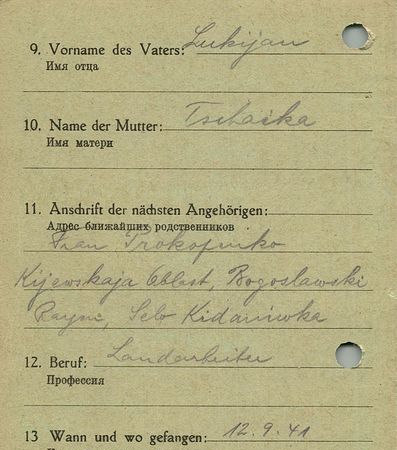 9. Vorname des Vaters: Lukijan
Имя отца
10. Name der Mutter: Tschaika
Имя матери
11. Anschrift der nächsten Angehörigen:
Адрес ближайших родственников
Frau Prokopenko
Kijewskaja Oblast, Bogoslawski
Rayno, Selo Kidaniwka
12. Beruf: Landarbeiter
Профессия
13 Wann und wo gefangen: 12.9.41